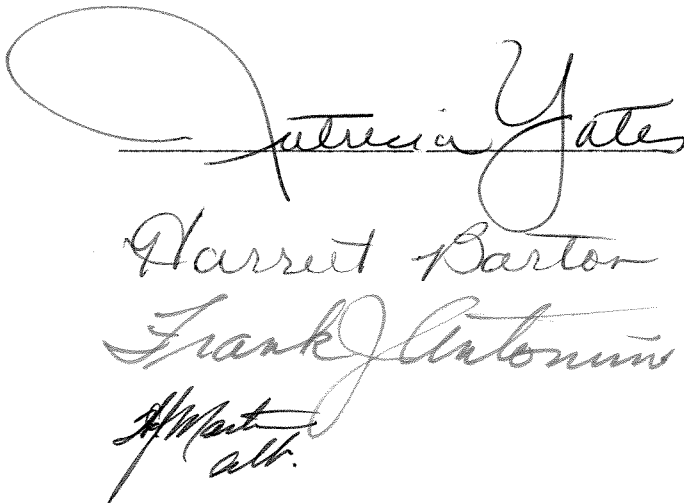 Patricia Yates
Harriet Barton
Frank J Antonini
Martin